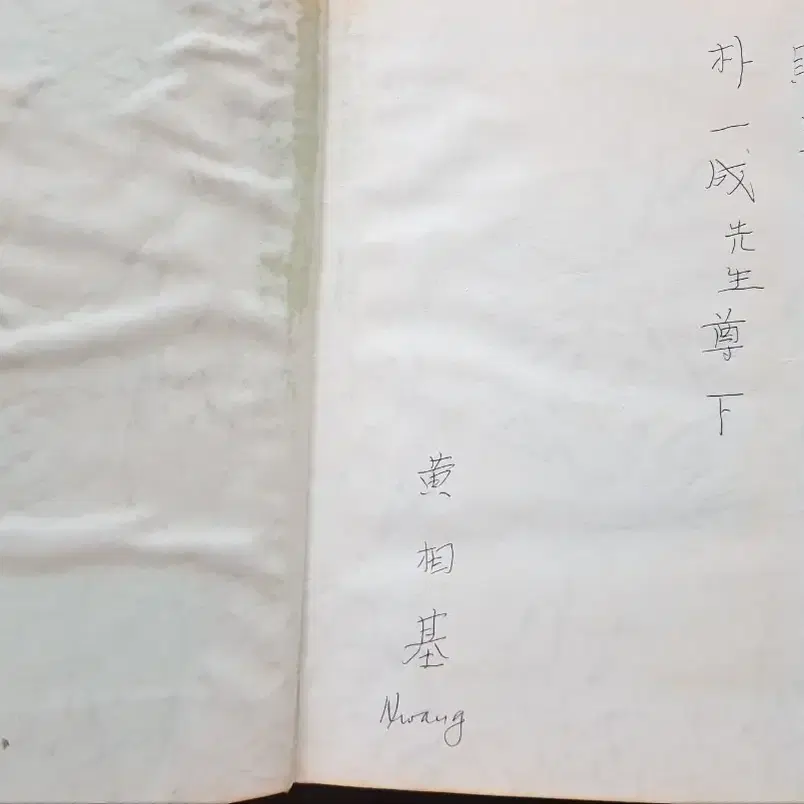 朴一成先生尊下
黄相基
Hwang